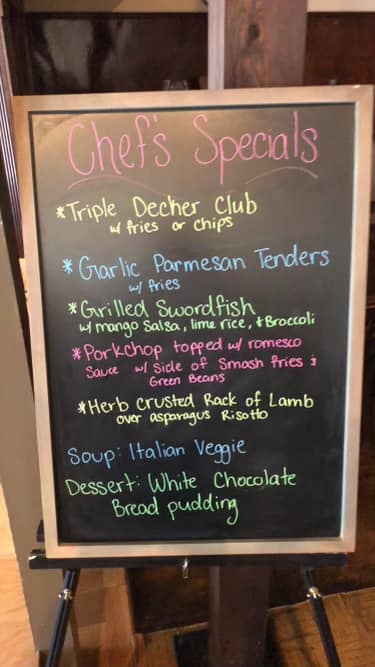 Chef's Specials
*Triple Decher Club
w/ fries or chips
*Garlic Parmesan Tenders
w/ fries
*Grilled Swordfish
w/ mango salsa, lime rice, & Broccoli
*Porkchop topped w/ romesco
Sauce w/ Side of Smash fries &
Green Beans
*Herb Crusted Rack of Lamb
over asparagus Risotto
Soup: Italian Veggie
Dessert: White Chocolate
Bread pudding